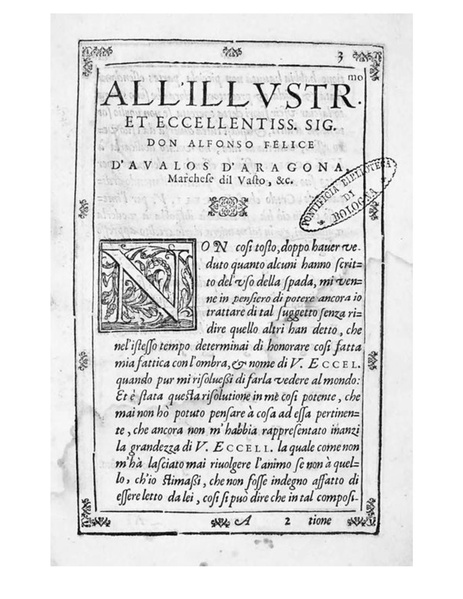 3
ALL'ILLVSTR.mo
ET ECCELLENTISS. SIG.
DON ALFONSO FELICE
D'AVALOS D'ARAGONA,
Marchese dil Vasto, &c.
PONTIFICIA BIBLIOTECA
DI
BOLOGNA
NON così tosto, doppo hauer ve-
duto quanto alcuni hanno scrit-
to del vso della spada, mi ven-
ne in pensiero di potere ancora io
trattare di tal suggetto senza ri-
dire quello altri han detto, che
nel'istesso tempo determinai di honorare così fatta
mia fattica con l'ombra, & nome di V. ECCEL.
quando pur mi risoluessi di farla vedere al mondo:
Et è stata questa risolutione in me così potente, che
mai non hò potuto pensare à cosa ad essa pertinen-
te, che ancora non m'habbia rappresentato inanzi
la grandezza di V. ECCELL. la quale come non
m'hà lasciato mai riuolgere l'animo se non à quel-
lo, ch'io stimassi, che non fosse indegno affatto di
essere letto da lei, così si può dire che in tal composi-
A 2 tione